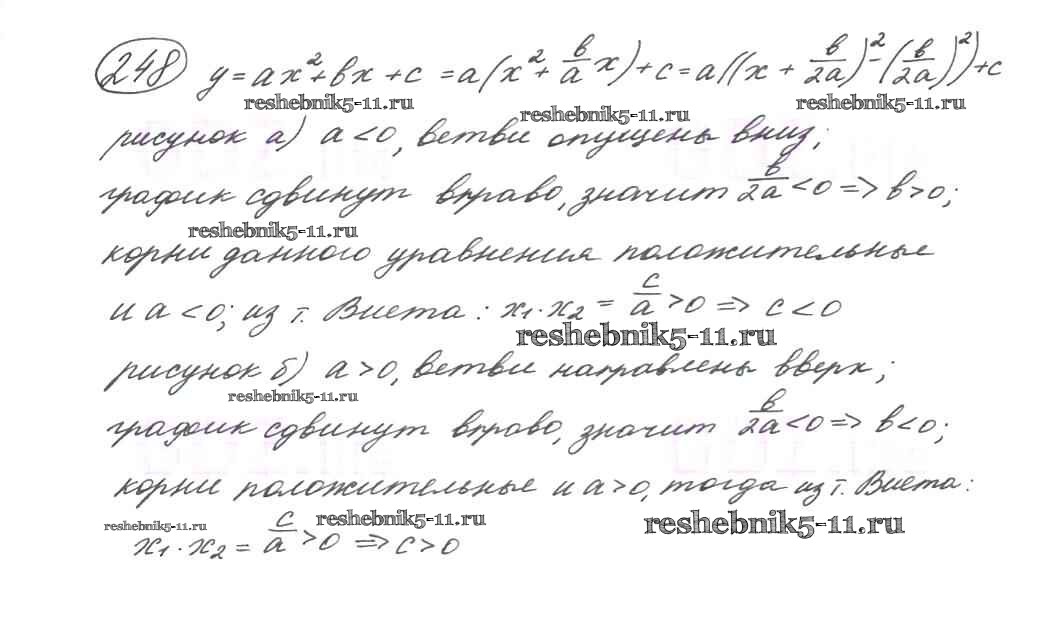 248 y = ax² + bx + c = a(x² + b/a x) + c = a((x + b/2a)² - (b/2a)²) + c
reshebnik5-11.ru reshebnik5-11.ru reshebnik5-11.ru
рисунок а) a < 0, ветви опущены вниз;
график сдвинут вправо, значит b/2a < 0 => b > 0;
reshebnik5-11.ru
корни данного уравнения положительные
и a < 0; из т. Виета: x₁·x₂ = c/a > 0 => c < 0
reshebnik5-11.ru
рисунок б) a > 0, ветви направлены вверх;
reshebnik5-11.ru
график сдвинут вправо, значит b/2a < 0 => b < 0;
корни положительные и a > 0, тогда из т. Виета:
reshebnik5-11.ru reshebnik5-11.ru reshebnik5-11.ru
x₁·x₂ = c/a > 0 => c > 0